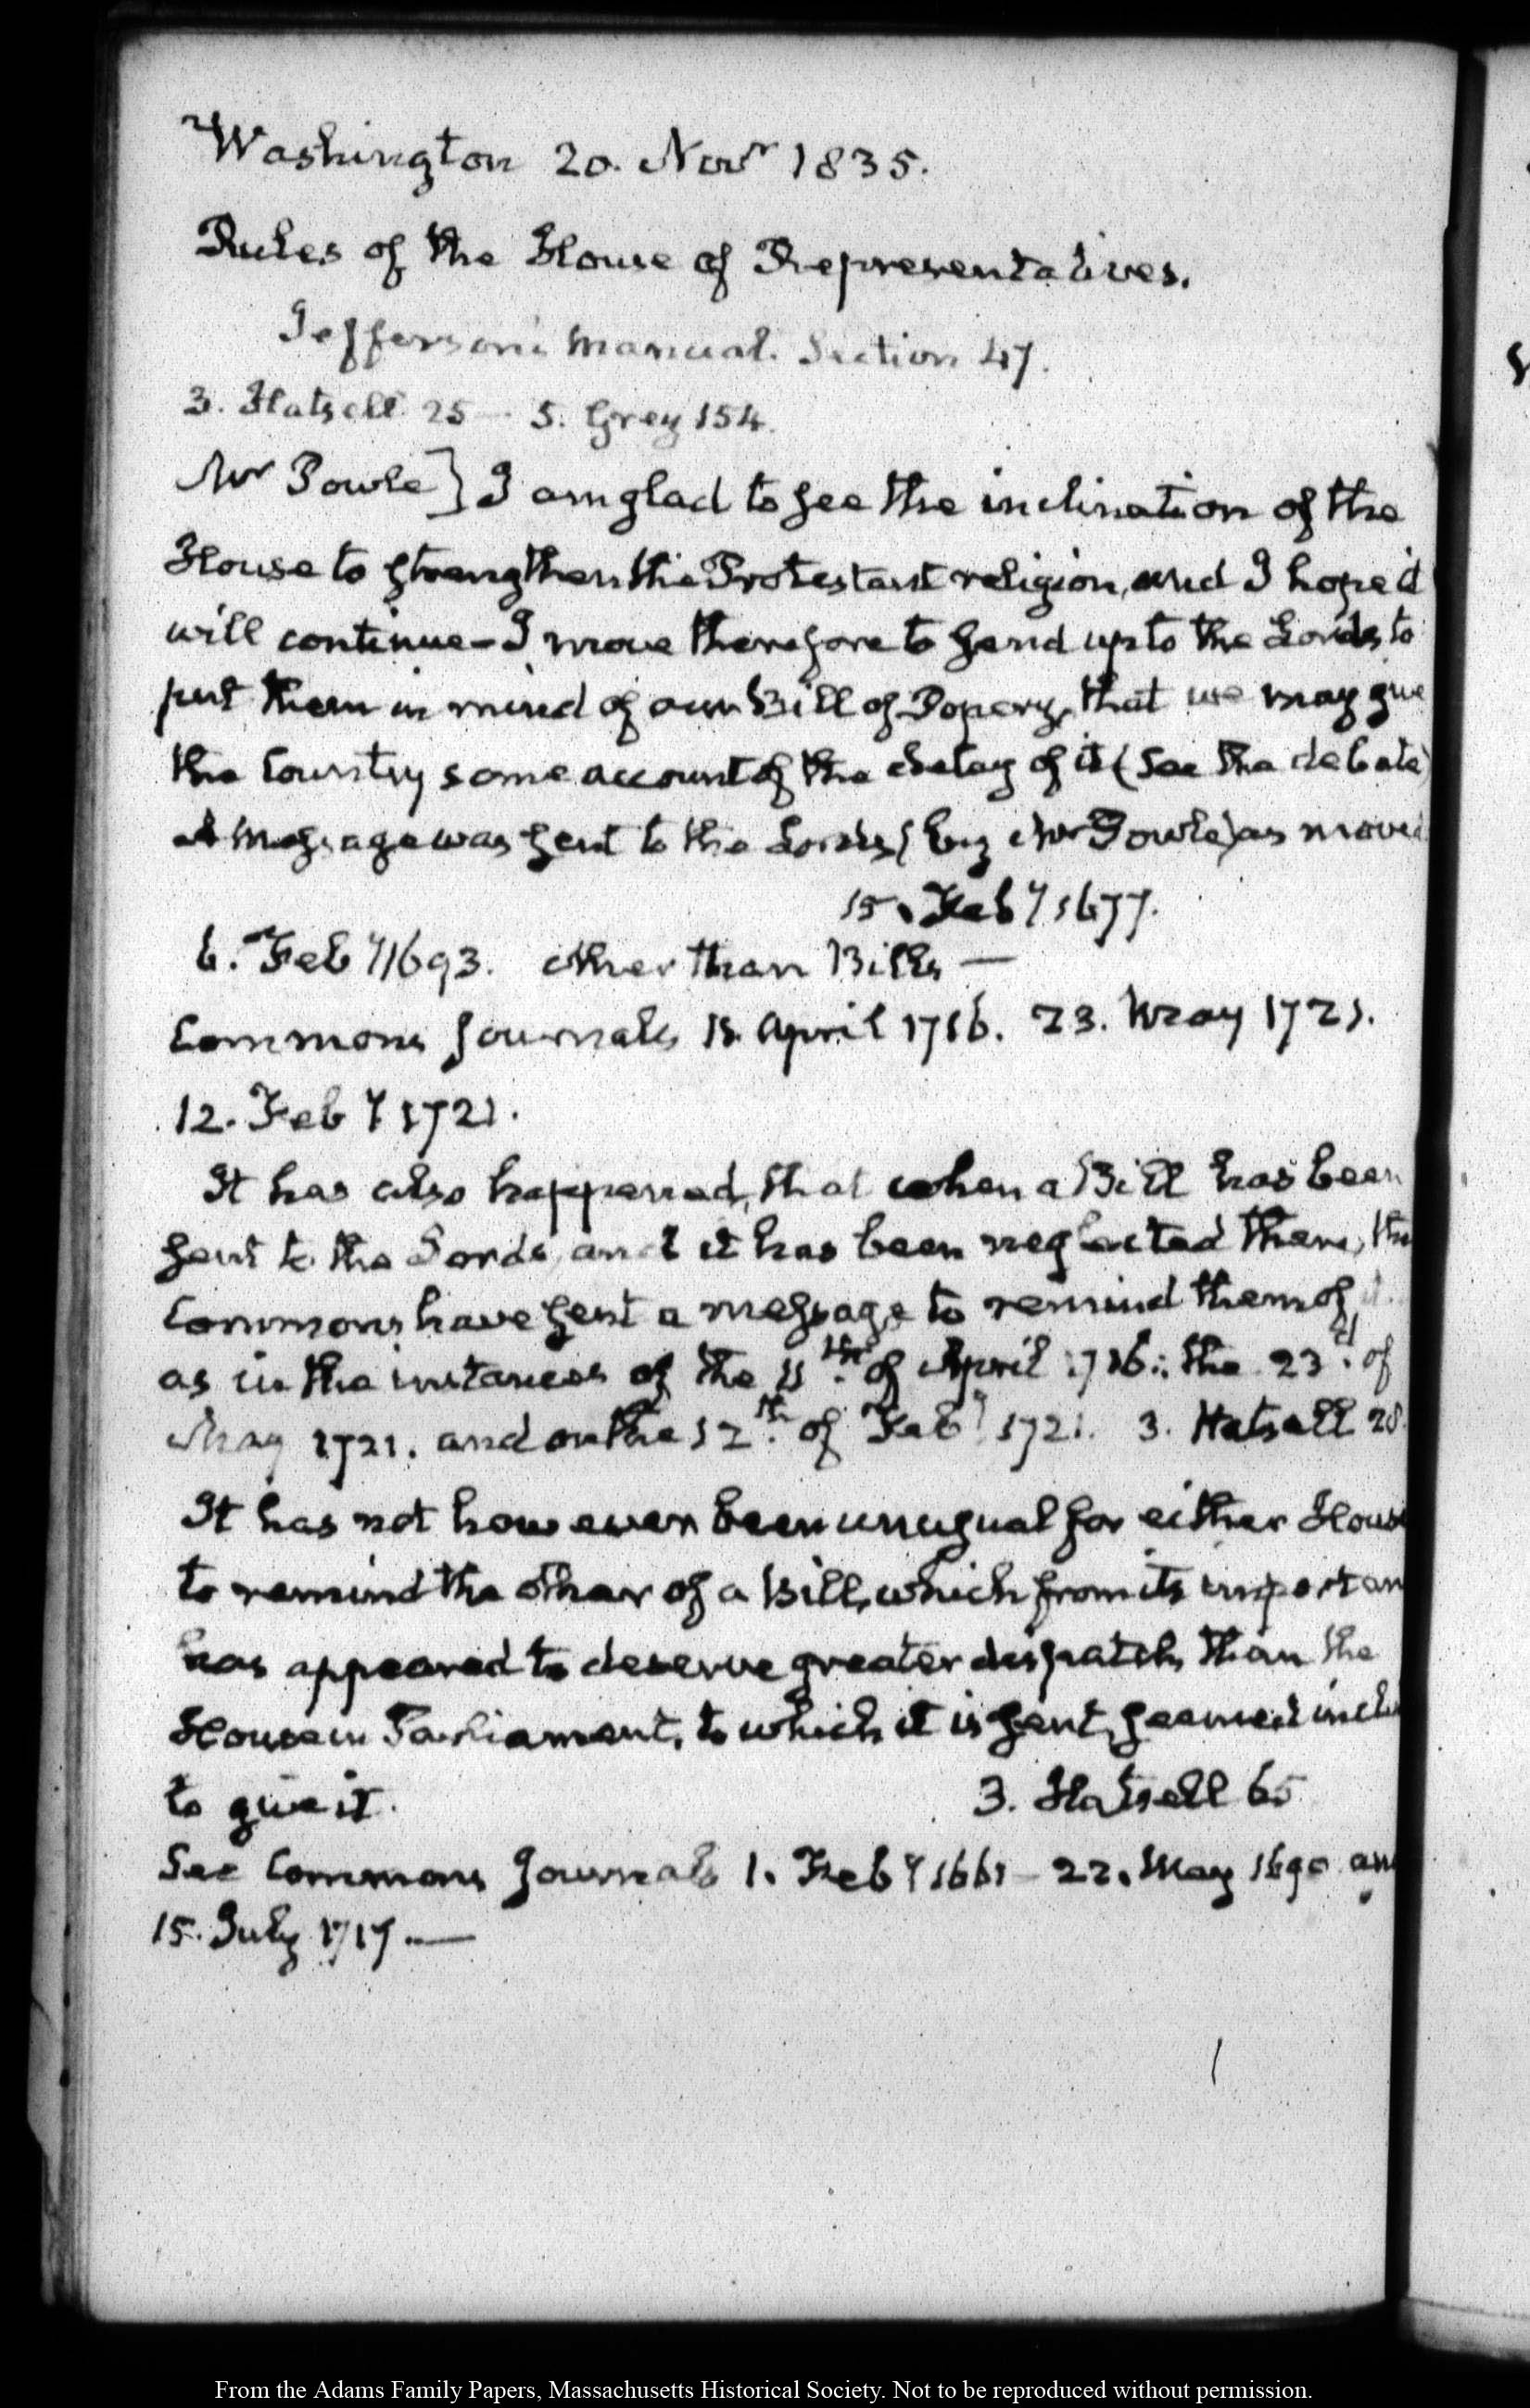 Washington 20. Novr 1835.
Rules of the House of Representatives.
Jefferson's Manual. Section 47.
3. Hatsell 25 — 5. Grey 154.
Mr Powle} I am glad to see the inclination of the
House to strengthen the Protestant religion, and I hope it
will continue — I move therefore to send up to the Lords, to
put them in mind of our Bill of Popery, that we may give
the Country some account of the delay of it (See the debate)
A Message was sent to the Lords (by Mr Powle) as moved
15. Feby 1677.
6. Feby 1693. other than Bills —
Commons Journals 11. April 1716. 23. May 1721.
12. Feby 1721.
It has also happened, that when a Bill has been
sent to the Lords, and it has been neglected there, the
Commons have sent a message to remind them of it.
as in the instances of the 11th. of April 1716: the 23d. of
May 1721. and on the 12th. of Feby 1721. 3. Hatsell 28.
It has not however been unusual for either House
to remind the other of a Bill, which from its importan
has appeared to deserve greater dispatch, than the
House in Parliament, to which it is sent, seemed incli
to give it. 3. Hatsell 65
See Commons Journals 1. Feby 1661 — 22. May 1690 an
15. July 1717. —
From the Adams Family Papers, Massachusetts Historical Society. Not to be reproduced without permission.